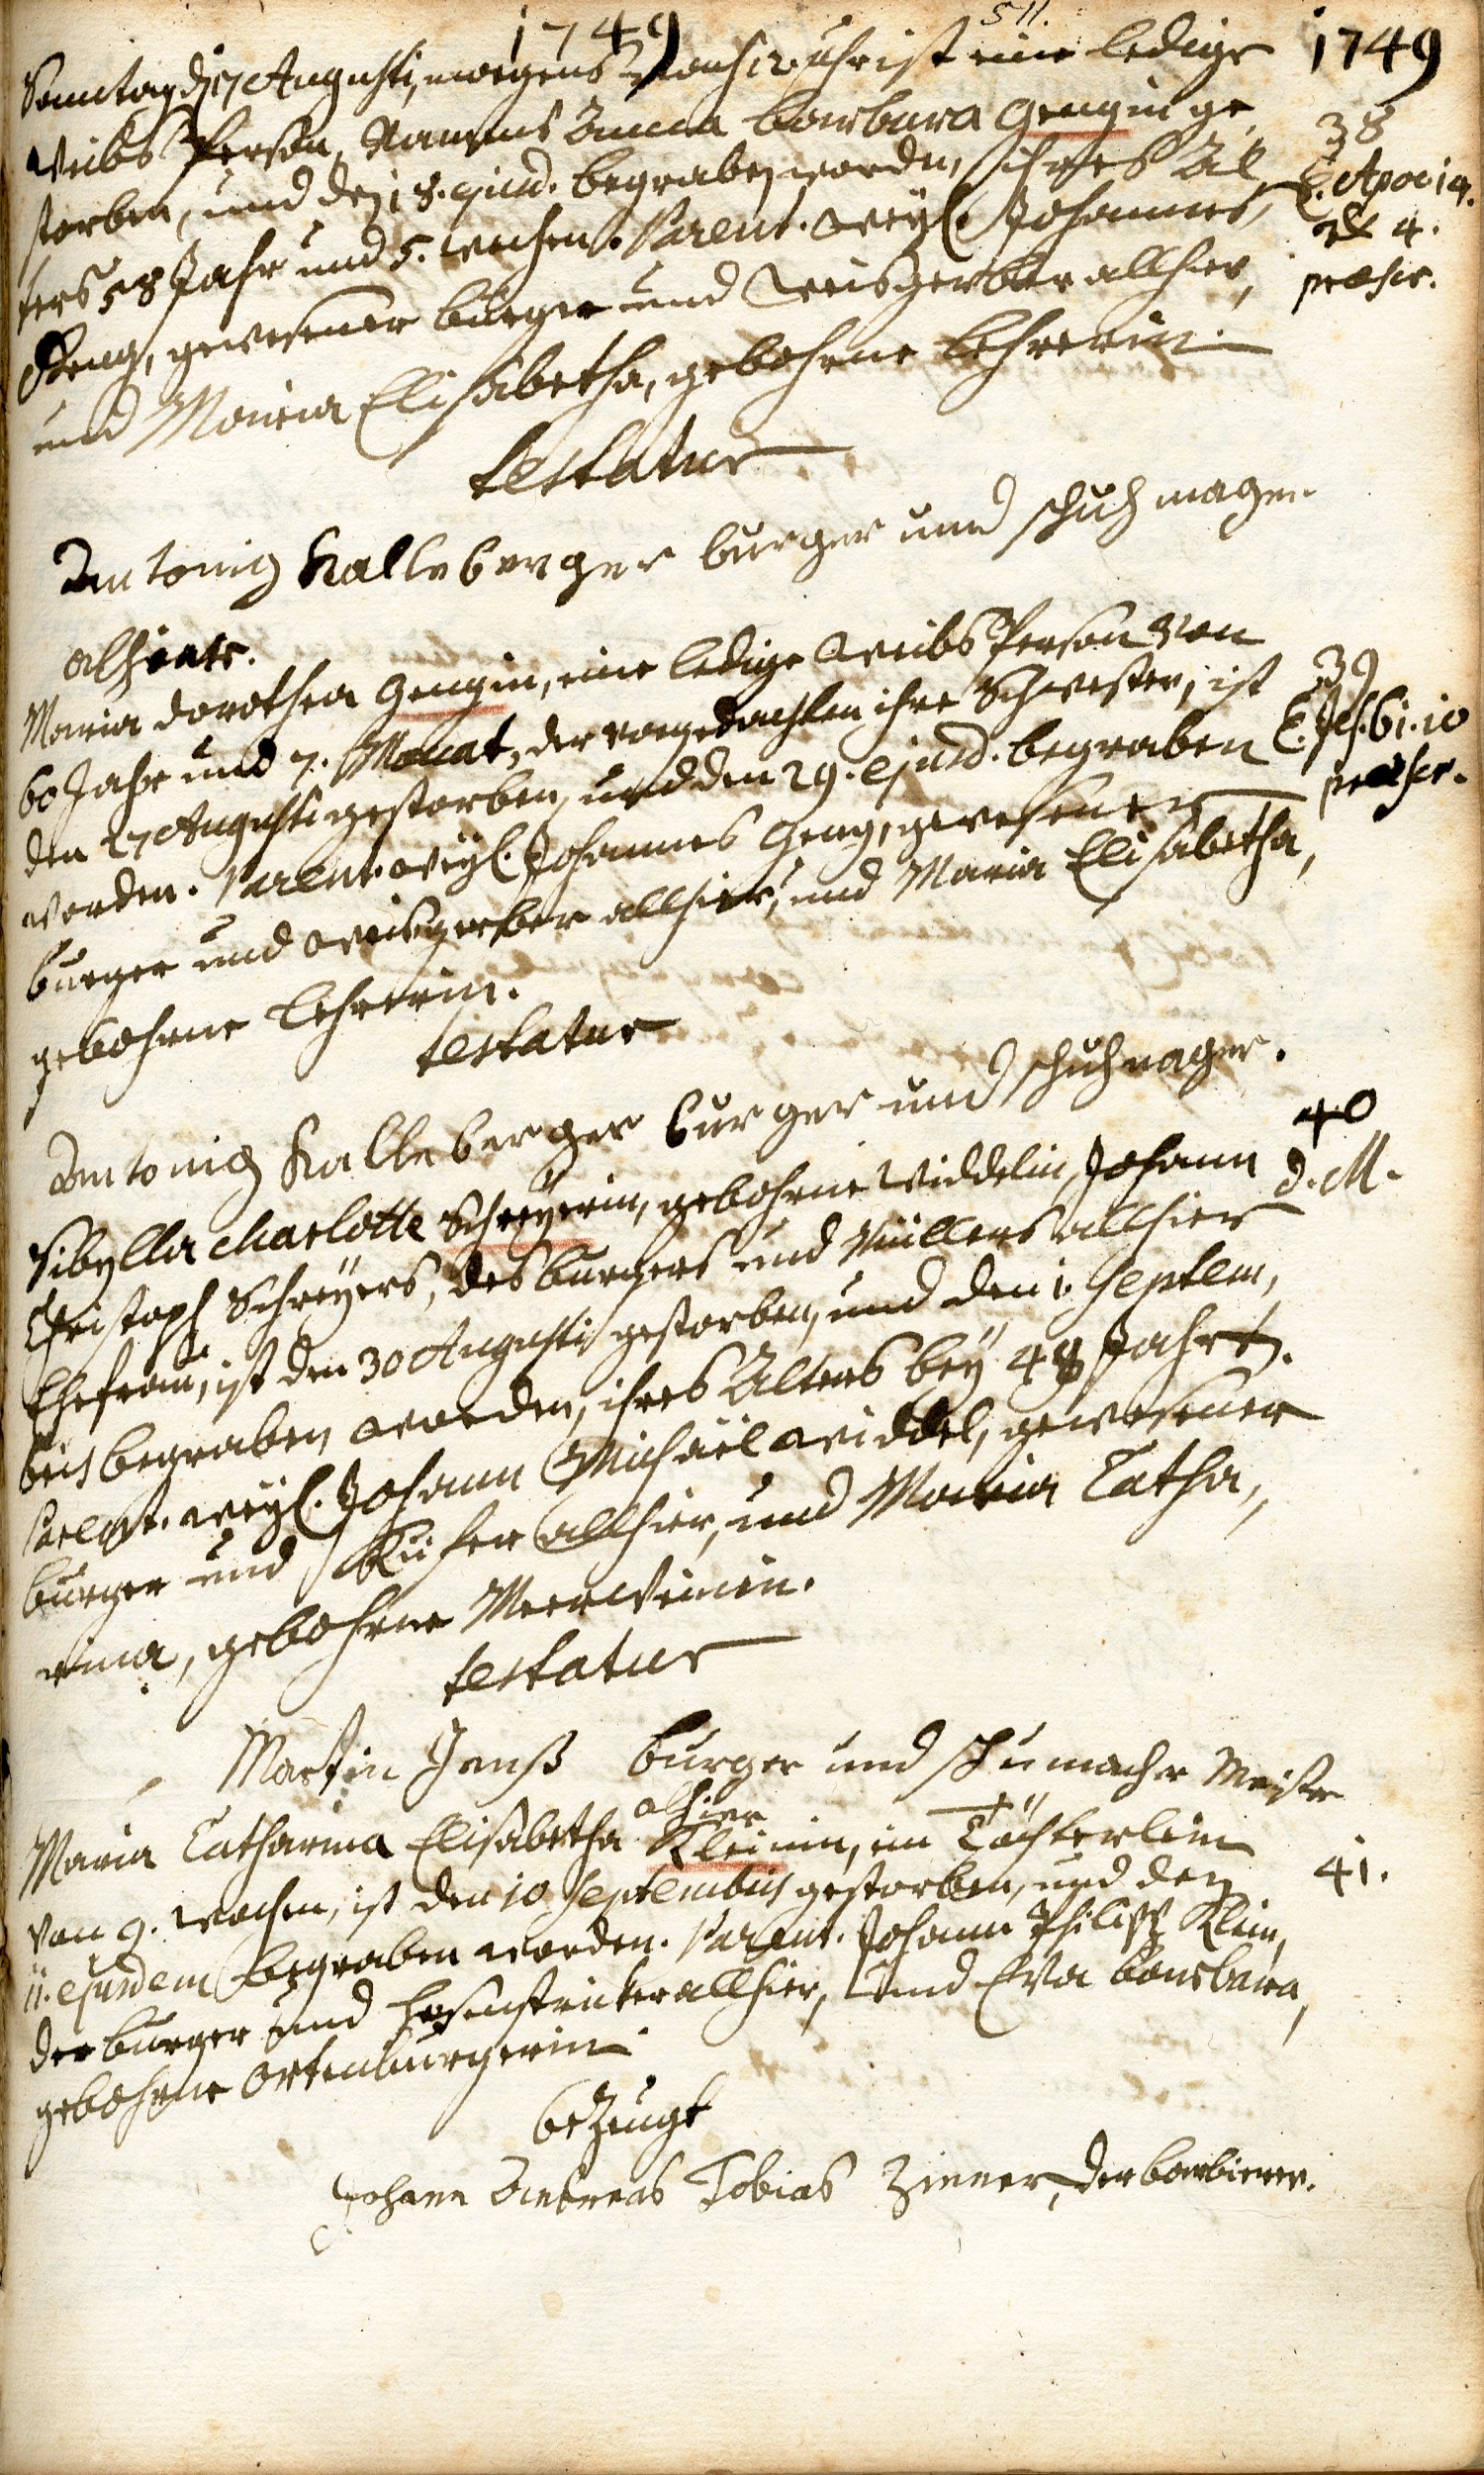 511.
1749 1749
Sonntag d. 17 Augusti, morgens nach 12 Uhr ist eine ledige
Weibs Person, Namens Anna Barbara Gengin ge 38
storben, und den 18. ejusd. begraben worden, ihres Al T. Apoc 14.
ters 58 Jahr und 5. wochen. Parent. weyl. Johannes 4.
Geng, gewesener burger und Weisgerber allhier, præscr.
und Maria Elisabetha, gebohrne Lehrerin.
testatur
Antonig Kalleberger burger und schuhmager
alhier.
Maria Dorothea Gengin, eine ledige Weibs Person von 39
60 Jahr und 7. Monat, der vorgedachten ihre Schwester, ist T. Jes. 61. 10
den 27 Augusti gestorben, und den 29. ejusd. begraben præscr.
worden. Parent. weyl. Johannes Geng, gewesener
burger und Weisgerber allhier, und Maria Elisabetha,
gebohrne Lehrerin.
testatur
Antonig Kalleberger burger und schuhmager.
40
Sibylla Charlotte Schreÿerin, gebohrne Widdelin, Johann d. M.
Christoph Schreÿers, des burgers und Müllers allhier
Ehefrau, ist den 30 Augusti gestorben, und den 1. Septem,
bris begraben worden, ihres Alters beÿ 48 Jahren.
Parent. weyl. Johann Michaël Widdel, gewesener
burger und Küfer allhier, und Maria Catha,
rina, gebohrne Meerweinin.
testatur
Martin burger und schumacher Meister
alhier
Maria Catharina Elisabetha Kleinin, ein Töchterlein
von 9. wochen, ist den 10 Septembris gestorben, und den 41.
11. ejusdem begraben worden. Parent. Johann Philipp Klein,
der burger und hosenstricker allhier, und Eva Barbara,
gebohrne Ortenburgerin.
bezeugt
Johann Andreas Tobias Zinner, der barbierer.